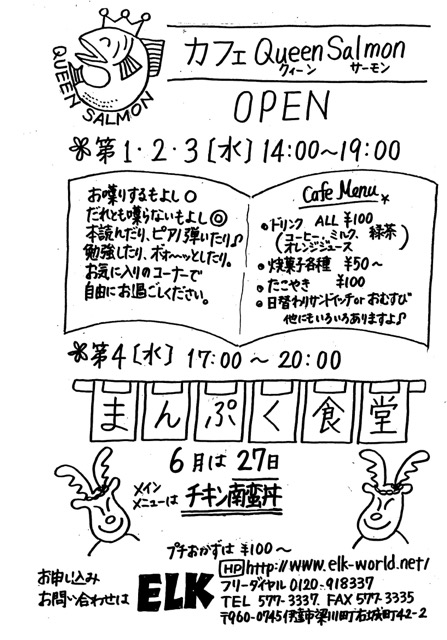 QUEEN SALMON
カフェ Queen Salmon
クィーン サーモン
OPEN
第1・2・3[水] 14:00~19:00
お喋りするもよし○
だれとも喋らないもよし◎
本読んだり、ピアノ弾いたり♪
勉強したり、ボォ〜ッとしたり。
お気に入りのコーナーで
自由にお過ごしください。
Cafe Menu
・ドリンク ALL ¥100
(コーヒー、ミルク、緑茶
オレンジジュース)
・焼菓子各種 ¥50~
・たこやき ¥100
・日替わりサンドイッチor おむすび
他にもいろいろありますよ♪
第4[水] 17:00~20:00
まんぷく食堂
6月は27日
メイン
メニューは チキン南蛮丼
プチおかずは ¥100~
お申し込み
お問い合わせは
ELK
HP http://www.elk-world.net/
フリーダイヤル 0120-918337
TEL 577-3337. FAX 577-3335
〒960-0745 伊達市梁川町右城町42-2